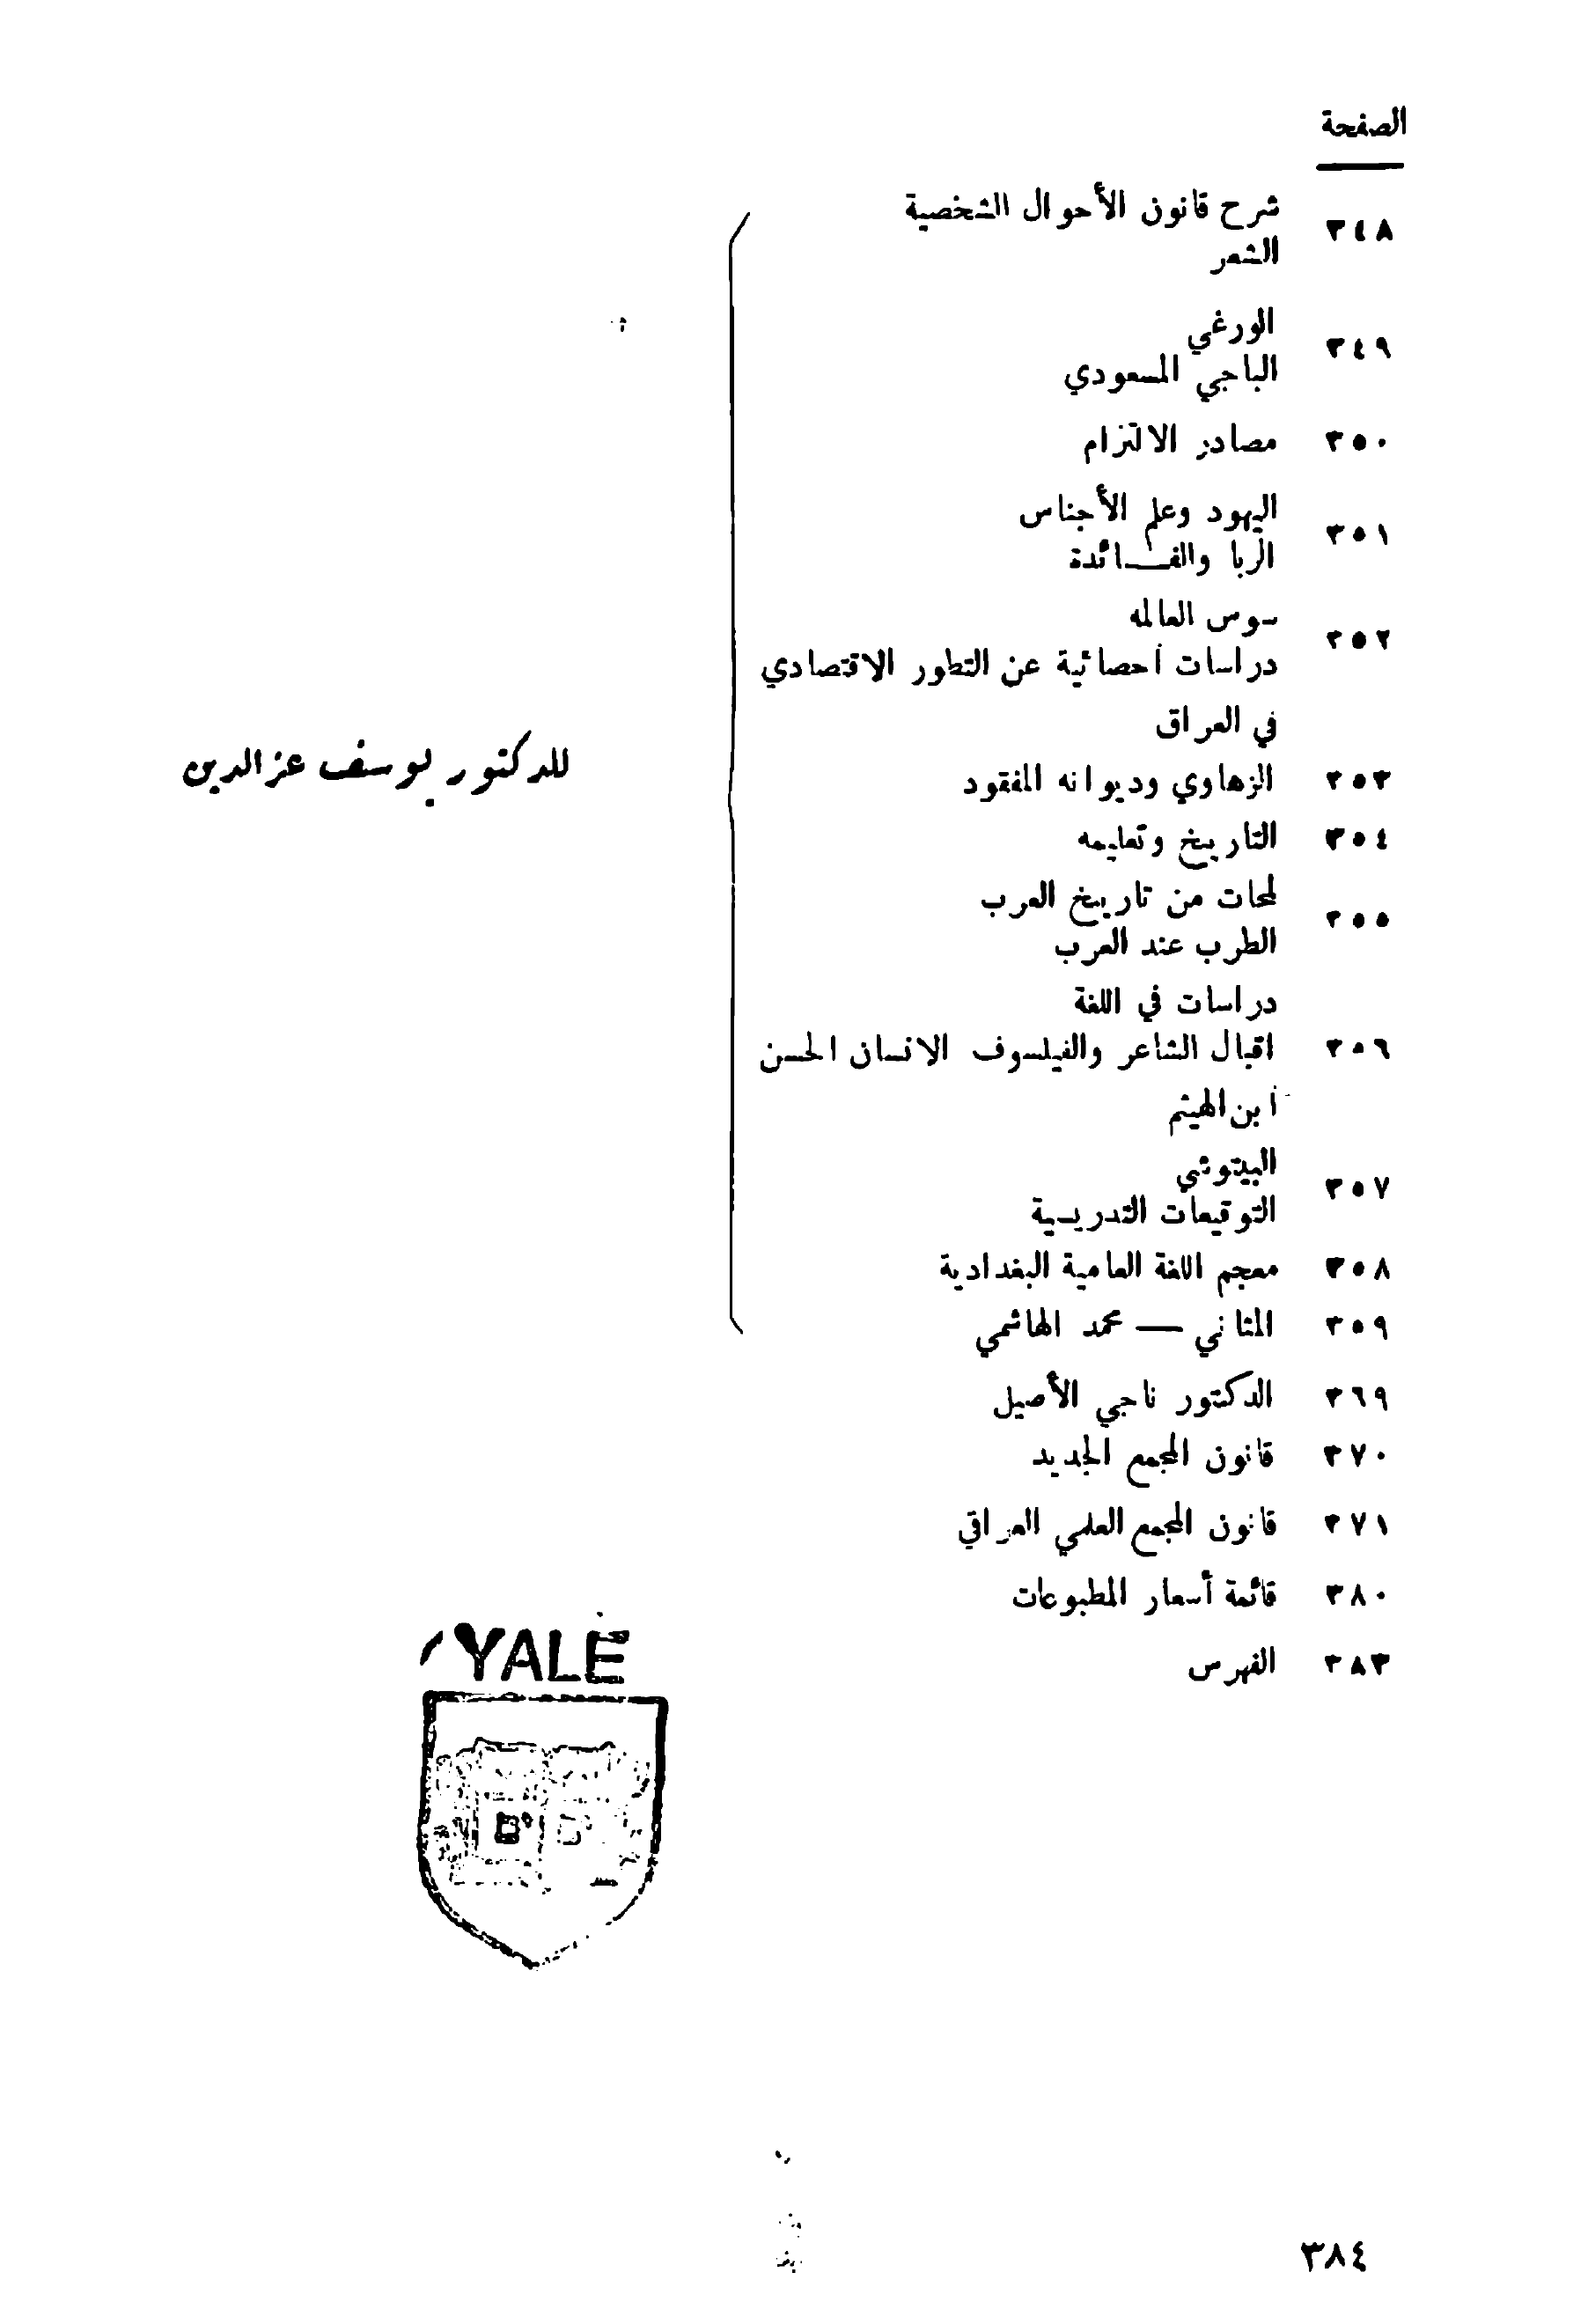 الصفحة
٣٤٨ شرح قانون الأحوال الشخصية
الشعر
٣٤٩ الورغي
الباجي المسعودي
٣٥٠ مصادر الالتزام
٣٥١ اليهود وعلم الأجناس
الربا والفـــائدة
٣٥٢ سوس العالمه
دراسات أحصائية عن التطور الاقتصادي
في العراق
٣٥٣ الزهاوي وديوانه المفقود
٣٥٤ التاريخ وتعليمه
٣٥٥ لمحات من تاريخ العرب
الطرب عند العرب
دراسات في اللغة
٣٥٦ اقبال الشاعر والفيلسوف الانسان الحسن
أبن الهيثم
٣٥٧ البيتوشي
التوقيعات التدريسية
٣٥٨ معجم اللغة العامية البغدادية
٣٥٩ المثاني — محمد الهاشمي
للدكتور يوسف عز الدين
٣٦٩ الدكتور ناجي الأصيل
٣٧٠ قانون المجمع الجديد
٣٧١ قانون المجمع العلمي العراقي
٣٨٠ قائمة أسعار المطبوعات
٣٨٣ الفهرس
YALE
٣٨٤